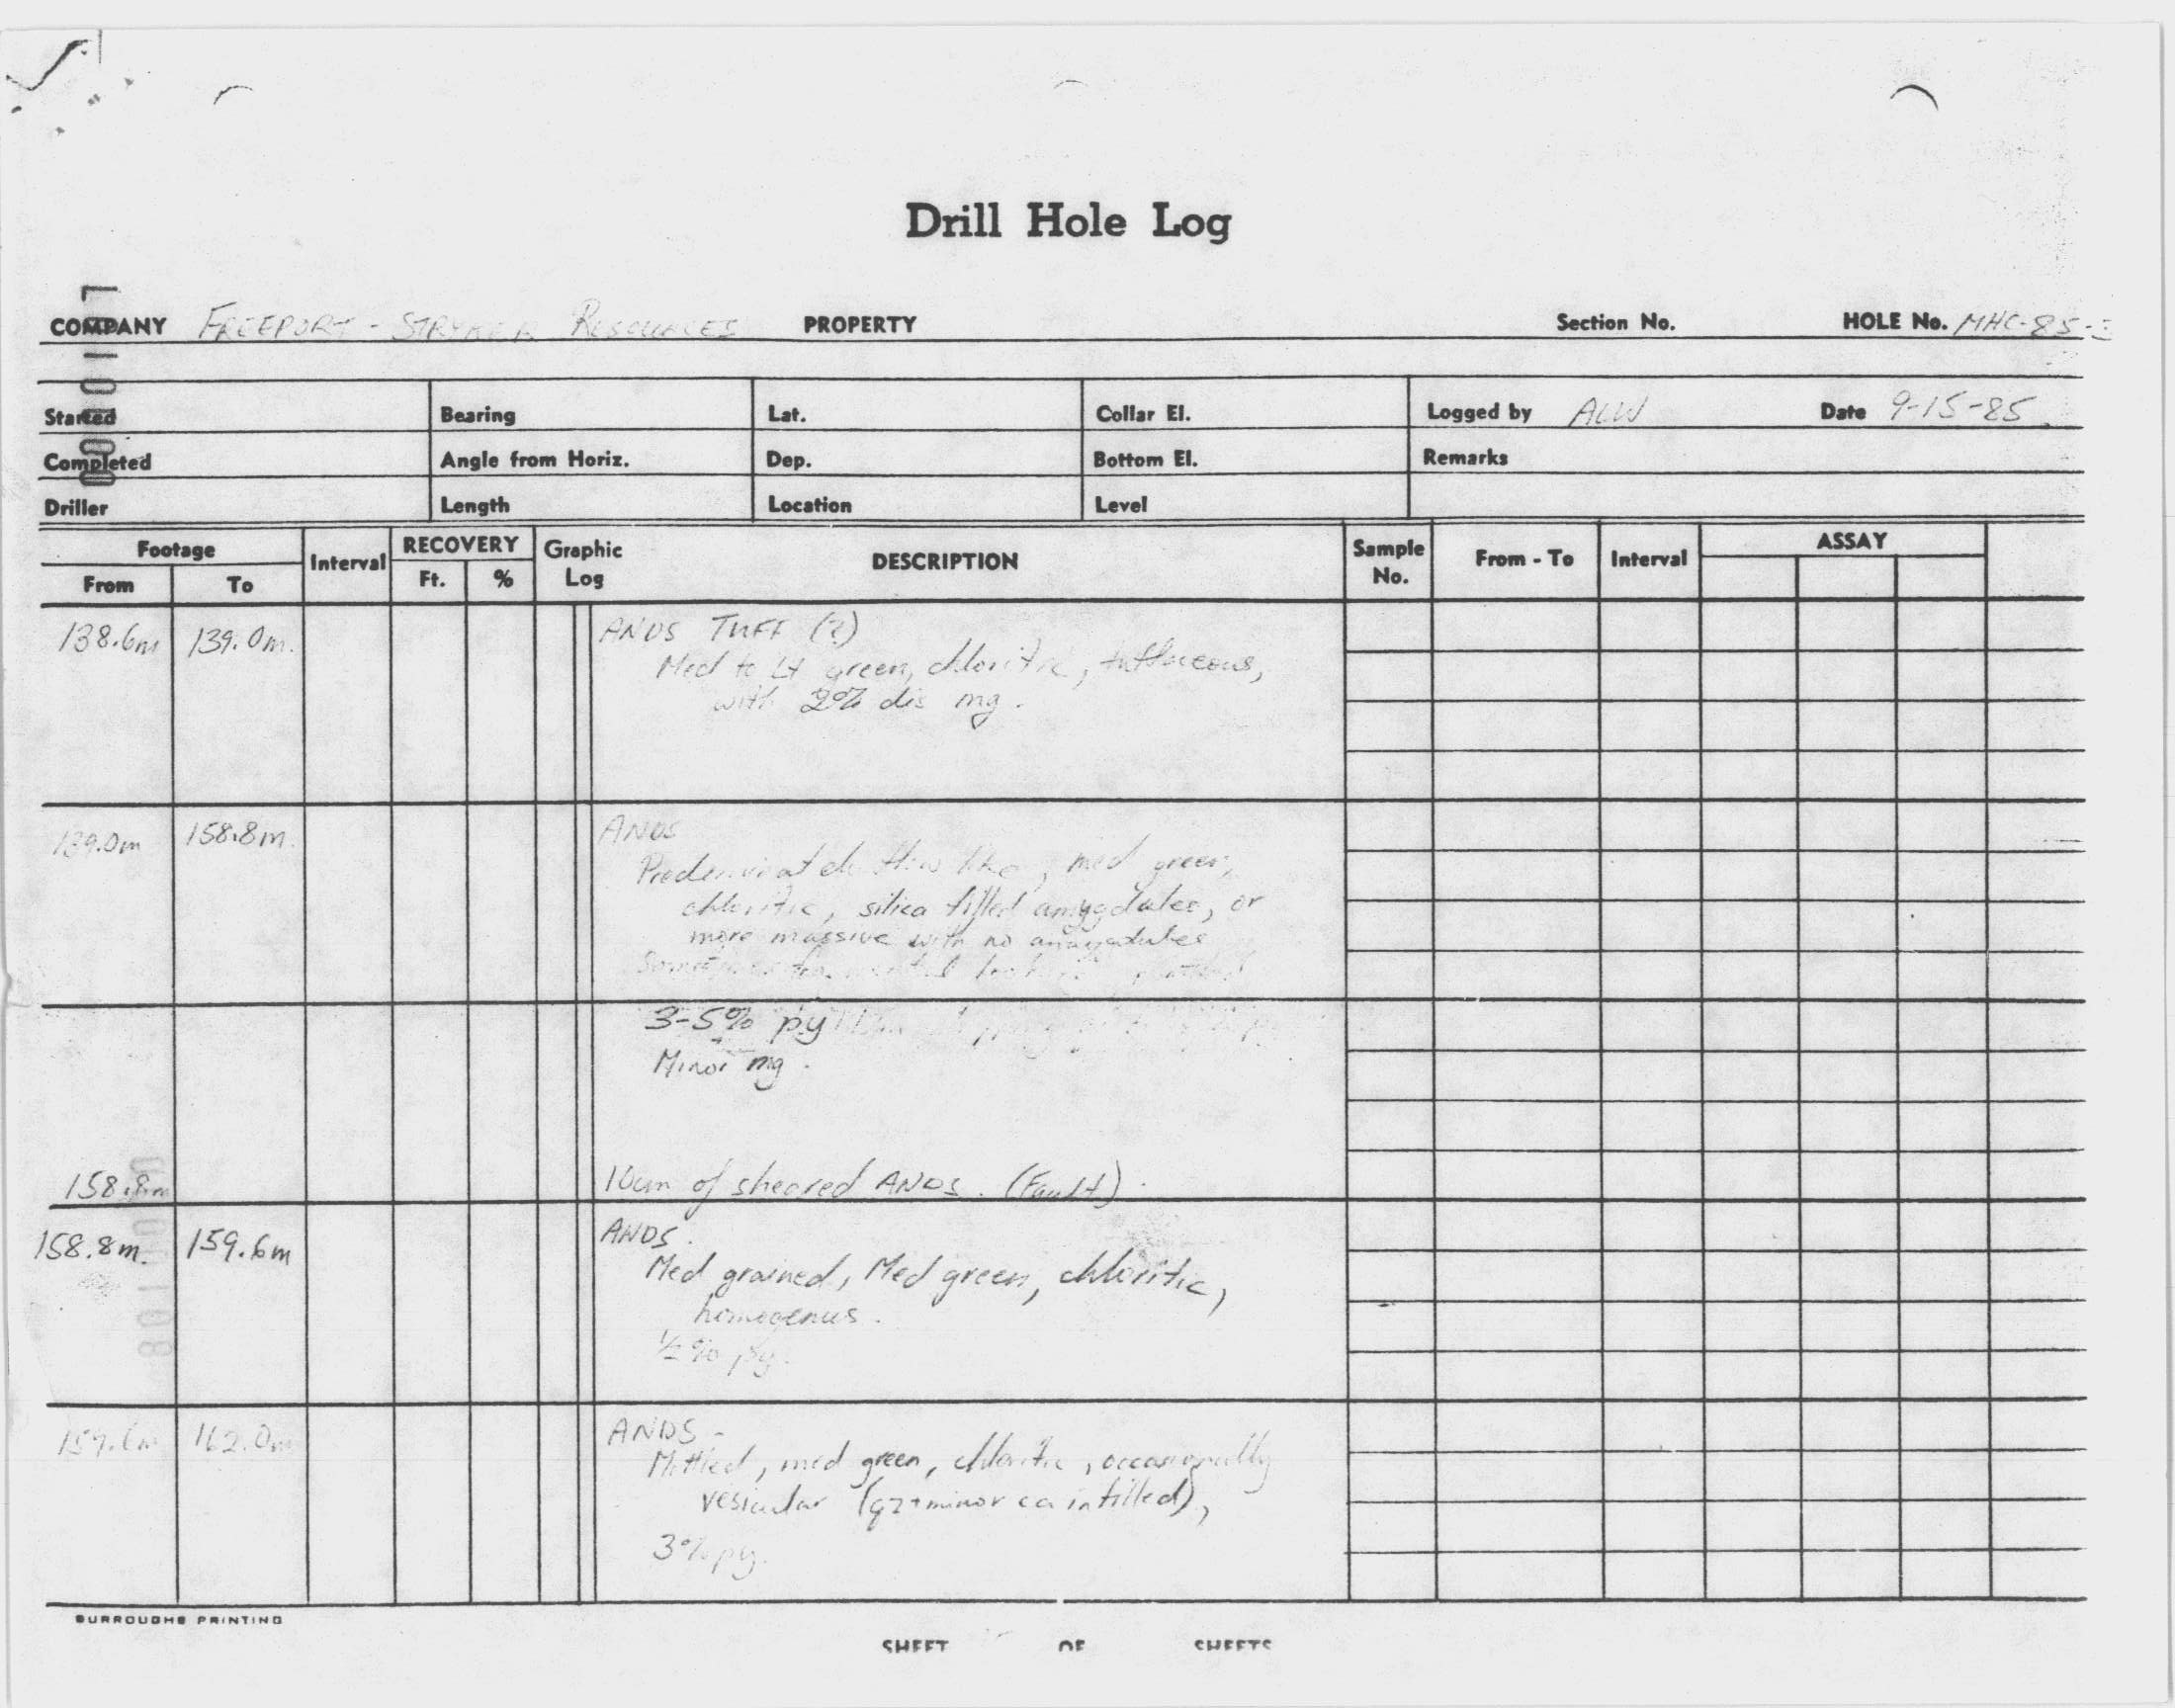 Drill Hole Log
COMPANY FREEPORT - STRYKER RESOURCES PROPERTY Section No. HOLE No. MHC-85-
Started Bearing Lat. Collar El. Logged by ALW Date 9-15-85
Completed Angle from Horiz. Dep. Bottom El. Remarks
Driller Length Location Level
Footage Interval RECOVERY Graphic Log DESCRIPTION Sample No. From - To Interval ASSAY
From To Ft. %
138.6m 139.0m. ANDS TUFF (?)
Med to Lt green, chloritic, tuffaceous,
with 2% dis mg.
139.0m 158.8m. ANDS
flow like, med green,
chloritic, silica filled amygdules, or
more massive with no amygdules
3-5% py
Minor mg.
158.8m 10cm of sheared ANDS. (Fault).
158.8m. 159.6m ANDS.
Med grained, Med green, chloritic,
homogenus.
1/2% py.
159.6m 162.0m ANDS-
Mottled, med green, chloritic, occasionally
vesicular (qz+minor ca infilled),
3% py.
BURROUGHS PRINTING
SHEET OF SHEETS